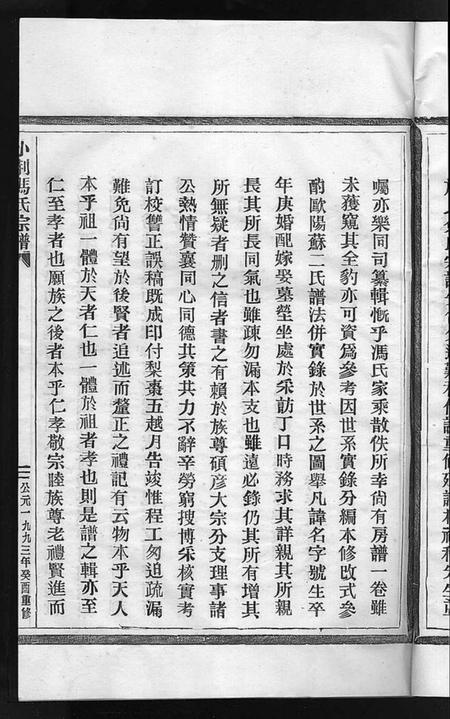 囑亦樂同司纂輯慨乎馮氏家乘散佚所幸尚有房譜一卷雖
未獲窺其全豹亦可資爲參考因世系實錄分編本修改式參
酌歐陽蘇二氏譜法併實錄於世系之圖舉凡諱名字號生卒
年庚婚配嫁娶墓塋坐處於采訪丁口時務求其詳親其所親
長其所長同氣也雖疎勿漏本支也雖遠必錄仍其所有增其
所無疑者刪之信者書之有賴於族尊碩彥大宗分支理事諸
公熱情贊襄同心同德共策共力不辭辛勞窮搜博采核實考
訂校讐正誤稿既成印付梨棗五越月告竣惟程工匆迫疏漏
難免尚有望於後賢者追述而釐正之禮記有云物本乎天人
本乎祖一體於天者仁也一體於祖者孝也則是譜之輯亦至
仁至孝者也願族之後者本乎仁孝敬宗睦族尊老禮賢進而
馮氏宗譜
公元一九九三年癸酉重修